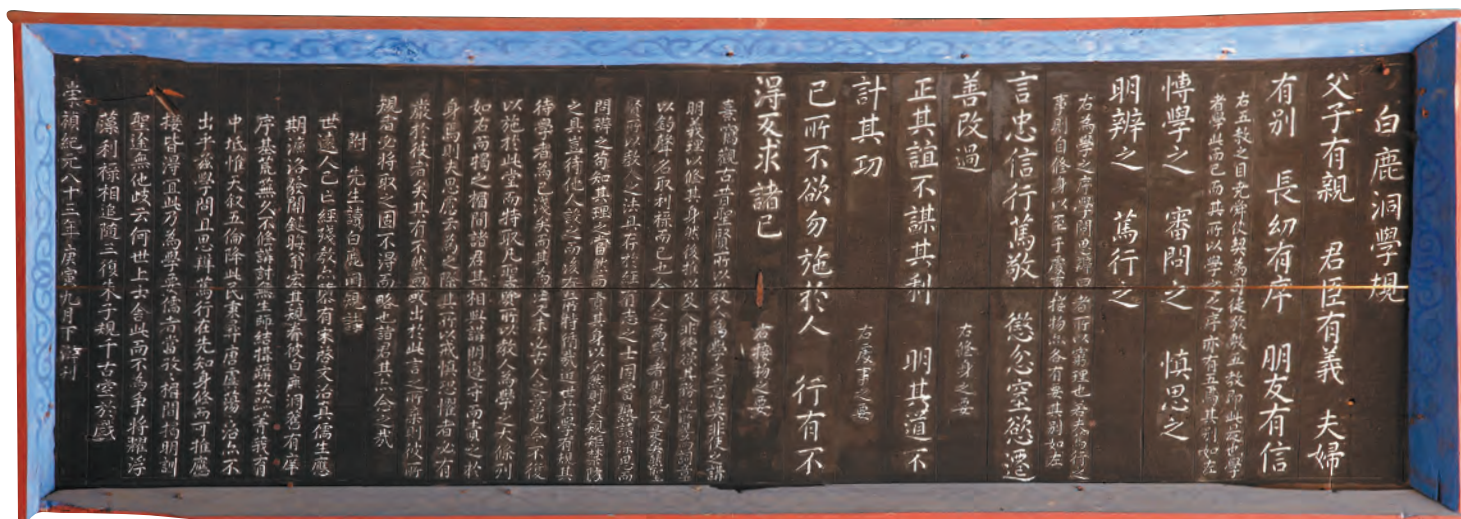 白鹿洞學規
父子有親 君臣有義 夫婦
有別 長幼有序 朋友有信
右五敎之目堯舜使契爲司徒敬敷五敎卽此是也學
者學此而已而其所以學之之序亦有五焉其別如左
博學之 審問之 愼思之
明辨之 篤行之
右爲學之序學問思辨四者所以窮理也若夫篤行之
事則自修身以至于處事接物亦各有要其別如左
言忠信行篤敬 懲忿窒慾遷
善改過 右修身之要
正其誼不謀其利 明其道不
計其功 右處事之要
己所不欲勿施於人 行有不
得反求諸己 右接物之要
熹竊觀古昔聖賢所以敎人爲學之意莫非使之講
明義理以修其身然後推以及人非徒欲其務記覽爲詞章
以釣聲名取利祿而已也今人之爲學者則旣反是矣然聖
賢所以敎人之法具存於經有志之士固當熟讀深思而
問辨之苟知其理之當然而責其身以必然則夫規矩禁防
之具豈待他人設之而後有所持循哉近世於學有規其
待學者爲已淺矣而其爲法又未必古人之意也今不復
以施於此堂而特取凡聖賢所以敎人爲學之大條列
如右而揭之楣間諸君其相與講明遵守而責之於
身焉則夫思慮云爲之際其所以戒愼恐懼者必有
嚴於彼者矣其有不然而或出於此言之所棄則彼所
規者必將取之固不得而略也諸君其亦念之哉
附 先生讀白鹿洞規詩
世遠人亡經殘敎 有未啓文治眞儒生應
期濂洛
序基荒無久不修 師結
中坻惟大叙五倫除此民 蕩 不
出乎 學問且思辨篤行在先知身修而可推應
接 得宜此乃爲學要 楣間揭明訓
聖途無他歧云何世上士舍此而不爲爭將耀浮
藻利祿相追隨三復朱子規千古空於戱
崇禎紀元八十三年庚寅九月 日 刊